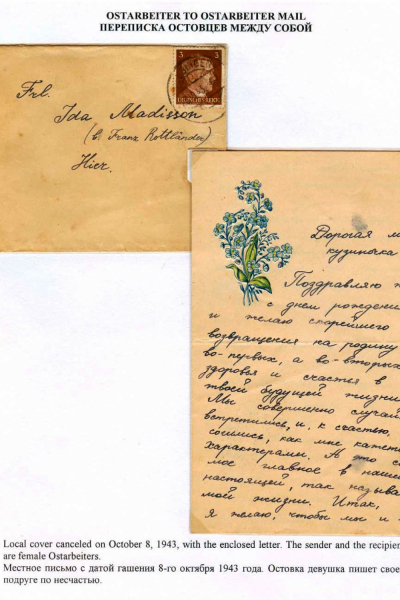 OSTARBEITER TO OSTARBEITER MAIL
ПЕРЕПИСКА ОСТОВЦЕВ МЕЖДУ СОБОЙ
3 3
Frl.
Ida Madisson
(b. Franz Rottländer)
Hier.
Дорогая м
кузиночка
Поздравляю
с днем рождени
и желаю скорейшего
возвращения на родину
во-первых, а во-вторых
здоровья и счастья в
твоей будущей жизни
Мы совершенно случай
встретились, и, к счастью,
сошлись, как мне кажет
характерами. А это са
мое главное в нашей
настоящей, так называ
мой жизни. Итак,
я желаю, чтобы мы и
Local cover canceled on October 8, 1943, with the enclosed letter. The sender and the recipien
are female Ostarbeiters.
Местное письмо с датой гашения 8-го октября 1943 года. Остовка девушка пишет свое
подруге по несчастью.